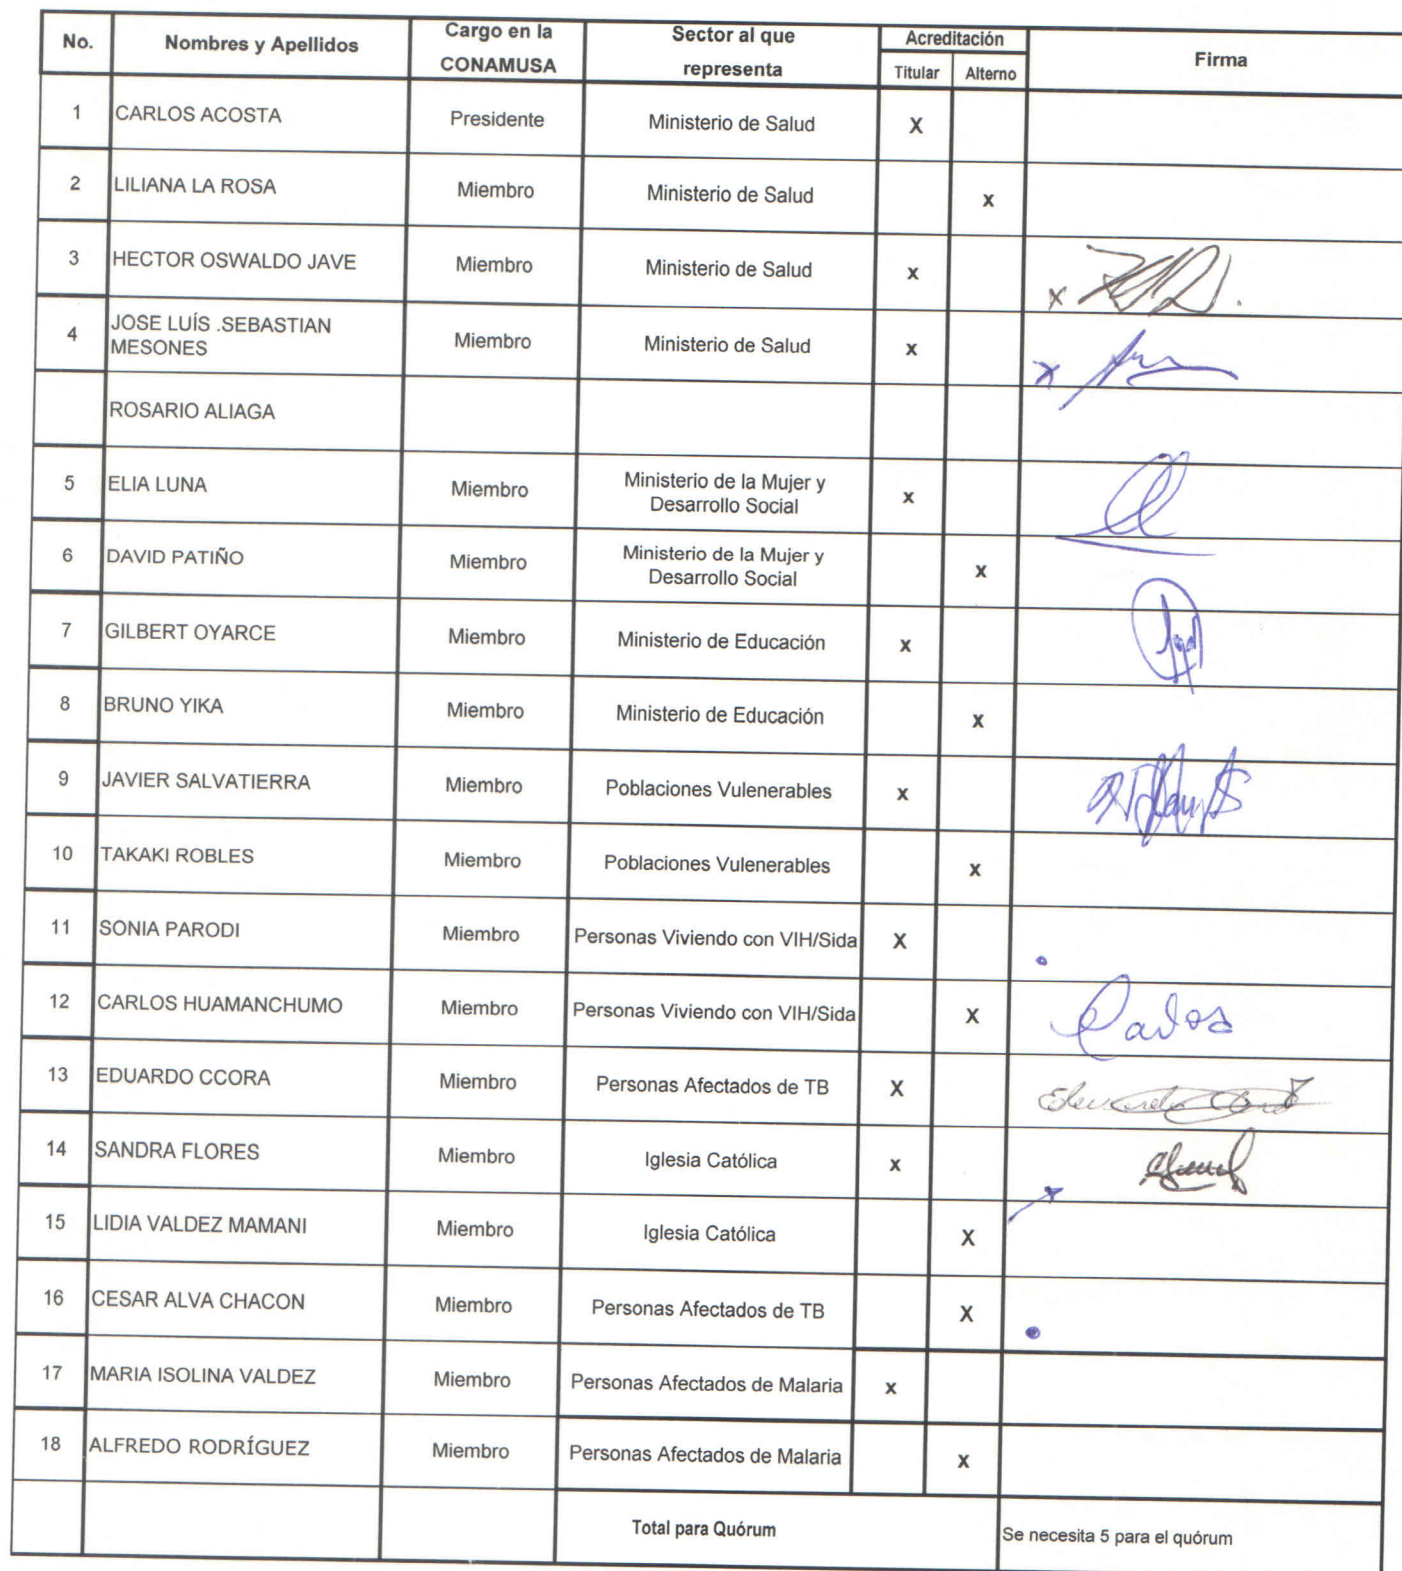 No. Nombres y Apellidos Cargo en la CONAMUSA Sector al que representa Acreditación Firma
Titular Alterno
1 CARLOS ACOSTA Presidente Ministerio de Salud X
2 LILIANA LA ROSA Miembro Ministerio de Salud x
3 HECTOR OSWALDO JAVE Miembro Ministerio de Salud x x
4 JOSE LUÍS .SEBASTIAN MESONES Miembro Ministerio de Salud x x
ROSARIO ALIAGA
5 ELIA LUNA Miembro Ministerio de la Mujer y Desarrollo Social x
6 DAVID PATIÑO Miembro Ministerio de la Mujer y Desarrollo Social x
7 GILBERT OYARCE Miembro Ministerio de Educación x
8 BRUNO YIKA Miembro Ministerio de Educación x
9 JAVIER SALVATIERRA Miembro Poblaciones Vulenerables x
10 TAKAKI ROBLES Miembro Poblaciones Vulenerables x
11 SONIA PARODI Miembro Personas Viviendo con VIH/Sida X
12 CARLOS HUAMANCHUMO Miembro Personas Viviendo con VIH/Sida X Carlos
13 EDUARDO CCORA Miembro Personas Afectados de TB X
14 SANDRA FLORES Miembro Iglesia Católica x
15 LIDIA VALDEZ MAMANI Miembro Iglesia Católica X
16 CESAR ALVA CHACON Miembro Personas Afectados de TB X
17 MARIA ISOLINA VALDEZ Miembro Personas Afectados de Malaria x
18 ALFREDO RODRÍGUEZ Miembro Personas Afectados de Malaria x
Total para Quórum Se necesita 5 para el quórum